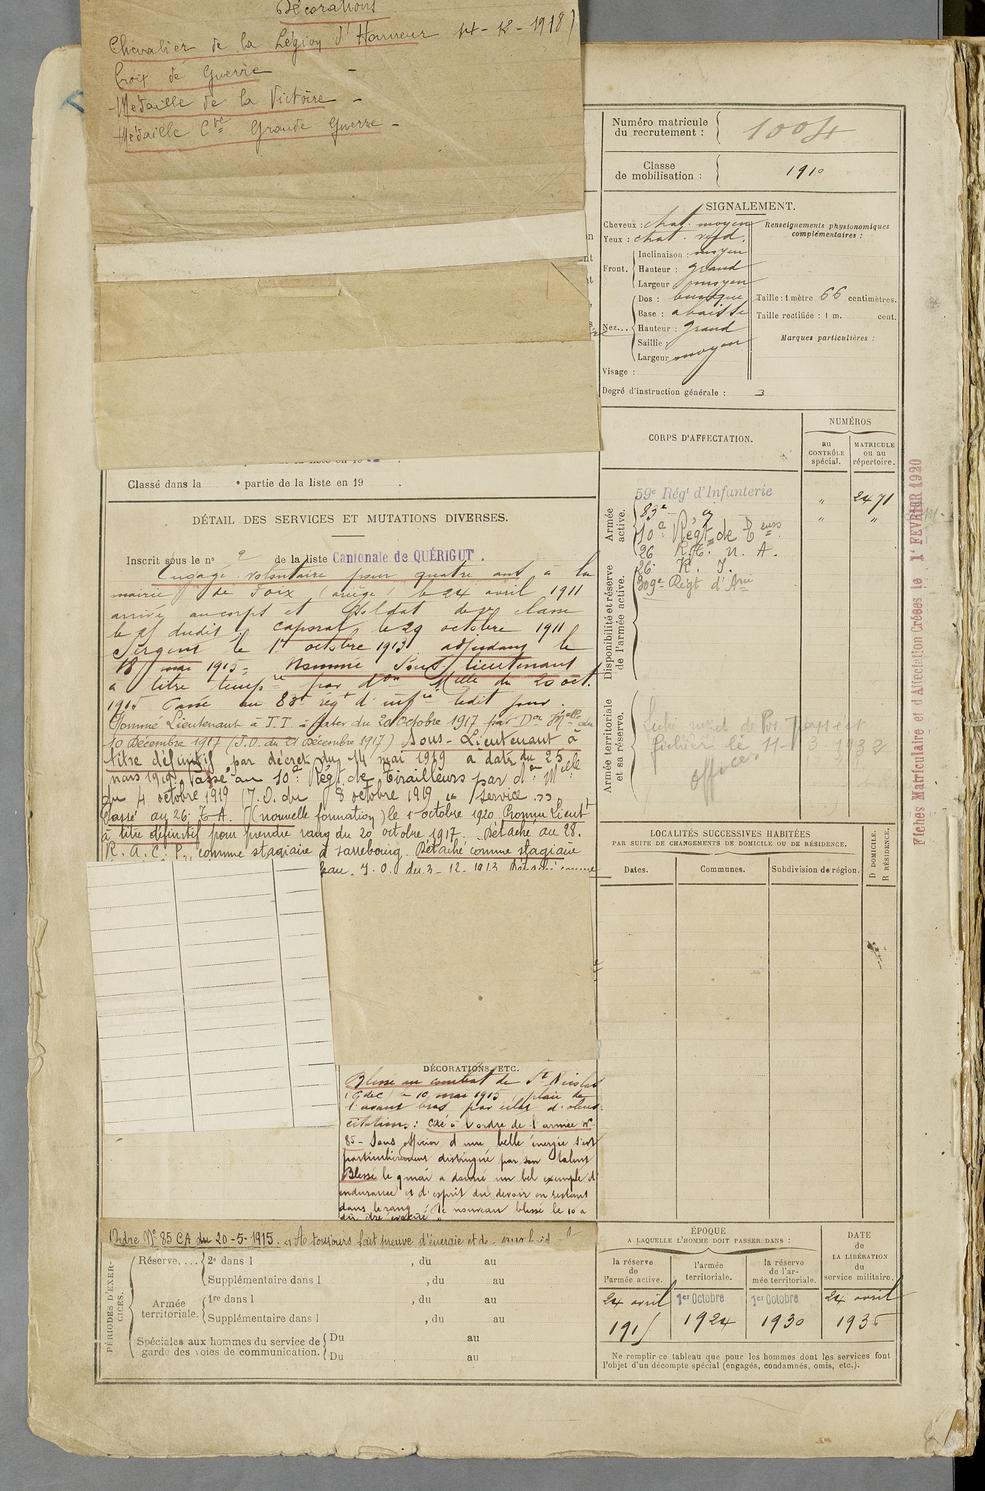 Décorations
Chevalier de la Légion d'Honneur
Croix de Guerre -
Médaille de la Victoire -
Médaille Cve Grande Guerre -
Numéro matricule
du recrutement :
1004
Classe
de mobilisation :
1910
SIGNALEMENT.
Cheveux : chat. moyen
Yeux : chat. verd.
Renseignements physionomiques
complémentaires :
Front.
Inclinaison : moyen
Hauteur : grand
Largeur : moyen
Nez...
Dos : busqué
Base : abaissé
Hauteur : grand
Saillie :
Largeur moyen
Taille : 1 mètre 66 centimètres.
Taille rectifiée : 1 m. cent.
Marques particulières :
Visage :
Degré d'instruction générale : 3
Classé dans la e partie de la liste en 19 .
DÉTAIL DES SERVICES ET MUTATIONS DIVERSES.
Inscrit sous le n° 2 de la liste Cantonale de QUÉRIGUT .
Engagé volontaire pour quatre ans à la
mairie de Foix (Ariège) le 24 avril 1911
arrivé au corps et Soldat de 2e classe
le 25 dudit caporal le 29 octobre 1911
Sergent le 1er octobre 1913 adjudant le
18 mai 1915 - Nommé Sous-lieutenant
à titre tempre par don Mlle du 20 oct.
1915 Passé au 83e régt d'infrie ledit jour.
Nommé Lieutenant à T.T. à dater du 20 Octobre 1917 par Don Mlle du
10 Décembre 1917 (J.O. du 21 Décembre 1917) Sous-Lieutenant à
titre définitif par décret du 14 mai 1919 à date du 25
mars 1919. Passé au 10e Régt de Tirailleurs par don Mlle
du 4 octobre 1919 J.O. du 8 octobre 1919 service
Passé au 26e T.A. (nouvelle formation) le 1er octobre 1920 Promu Lieutt
à titre définitif pour prendre rang du 20 octobre 1917. Détaché au 28.
R.A.C.P. comme stagiaire à Sarrebourg. Détaché comme stagiaire
J.O. du 3-12-1923 Détaché comme
CORPS D'AFFECTATION.
NUMÉROS
au
CONTRÔLE
spécial.
MATRICULE
ou au
répertoire.
Armée
active.
59e Régt d'Infanterie " 2471
83e " "
10e Régt de Tirs
26 R.T. N. A.
26 R. T.
Disponibilité et réserve
de l'armée active.
309e Régt d'Arie
Armée territoriale
et sa réserve.
fichier le 11-3-1932
LOCALITÉS SUCCESSIVES HABITÉES
PAR SUITE DE CHANGEMENTS DE DOMICILE OU DE RÉSIDENCE.
Dates.
Communes.
Subdivision de région.
D DOMICILE.
R RÉSIDENCE.
Fiches Matriculaire et d'Affectation Créées le 1er FEVRIER 1920
DÉCORATIONS, ETC.
Blessé au combat de St Nicolas
(P de C) le 10 mai 1915, plaie de
l'avant bras par éclat d'obus
citations : cité à l'ordre de l'armée n°
85 - Sous officier d'une belle énergie s'est
particulièrement distingué par son talent
Blessé le 9 mai a donné un bel exemple d'
endurance et d'esprit du devoir en restant
dans le rang. De nouveau blessé le 10 a
dû être évacué "
Ordre N° 85 CA du 20-5-1915. "A toujours fait preuve d'énergie et de
PÉRIODES D'EXERCICES.
Réserve, ...
2e dans l , du au
Supplémentaire dans l , du au
Armée
territoriale.
1re dans l , du au
Supplémentaire dans l , du au
Spéciales aux hommes du service de
garde des voies de communication.
Du au
Du au
ÉPOQUE
A LAQUELLE L'HOMME DOIT PASSER DANS :
la réserve
de
l'armée active.
l'armée
territoriale.
la réserve
de l'armée territoriale.
DATE
de
LA LIBÉRATION
du
service militaire.
24 avril
1er Octobre
1er Octobre
24 avril
1915
1924
1930
1936
Ne remplir ce tableau que pour les hommes dont les services font
l'objet d'un décompte spécial (engagés, condamnés, omis, etc.).